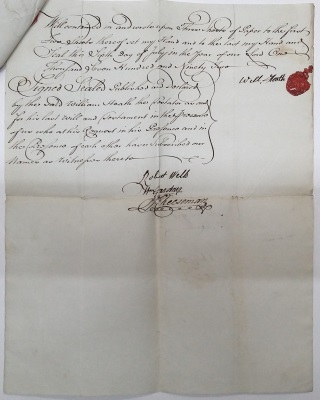 Will contained in and wrote upon Three Sheets of Paper to the first
Two Sheets thereof set my Hand and to this last my Hand and
Seal this Eighth Day of July in the Year of our Lord One
Thousand Seven Hundred and Ninety Two
Will: Heath
Signed Sealed Published and Declared
by the said William Heath the Testator as and
for his last Will and Testament in the presence
of us who at his Request in his Presence and in
the Presence of each other have Subscribed our
Names as Witnesses hereto
Robt Webb
Wm
Cheesman